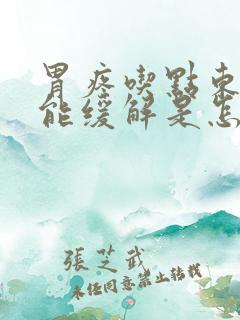 胃疼喫點東
能緩解是怎
張芝武
未經同意禁止轉載